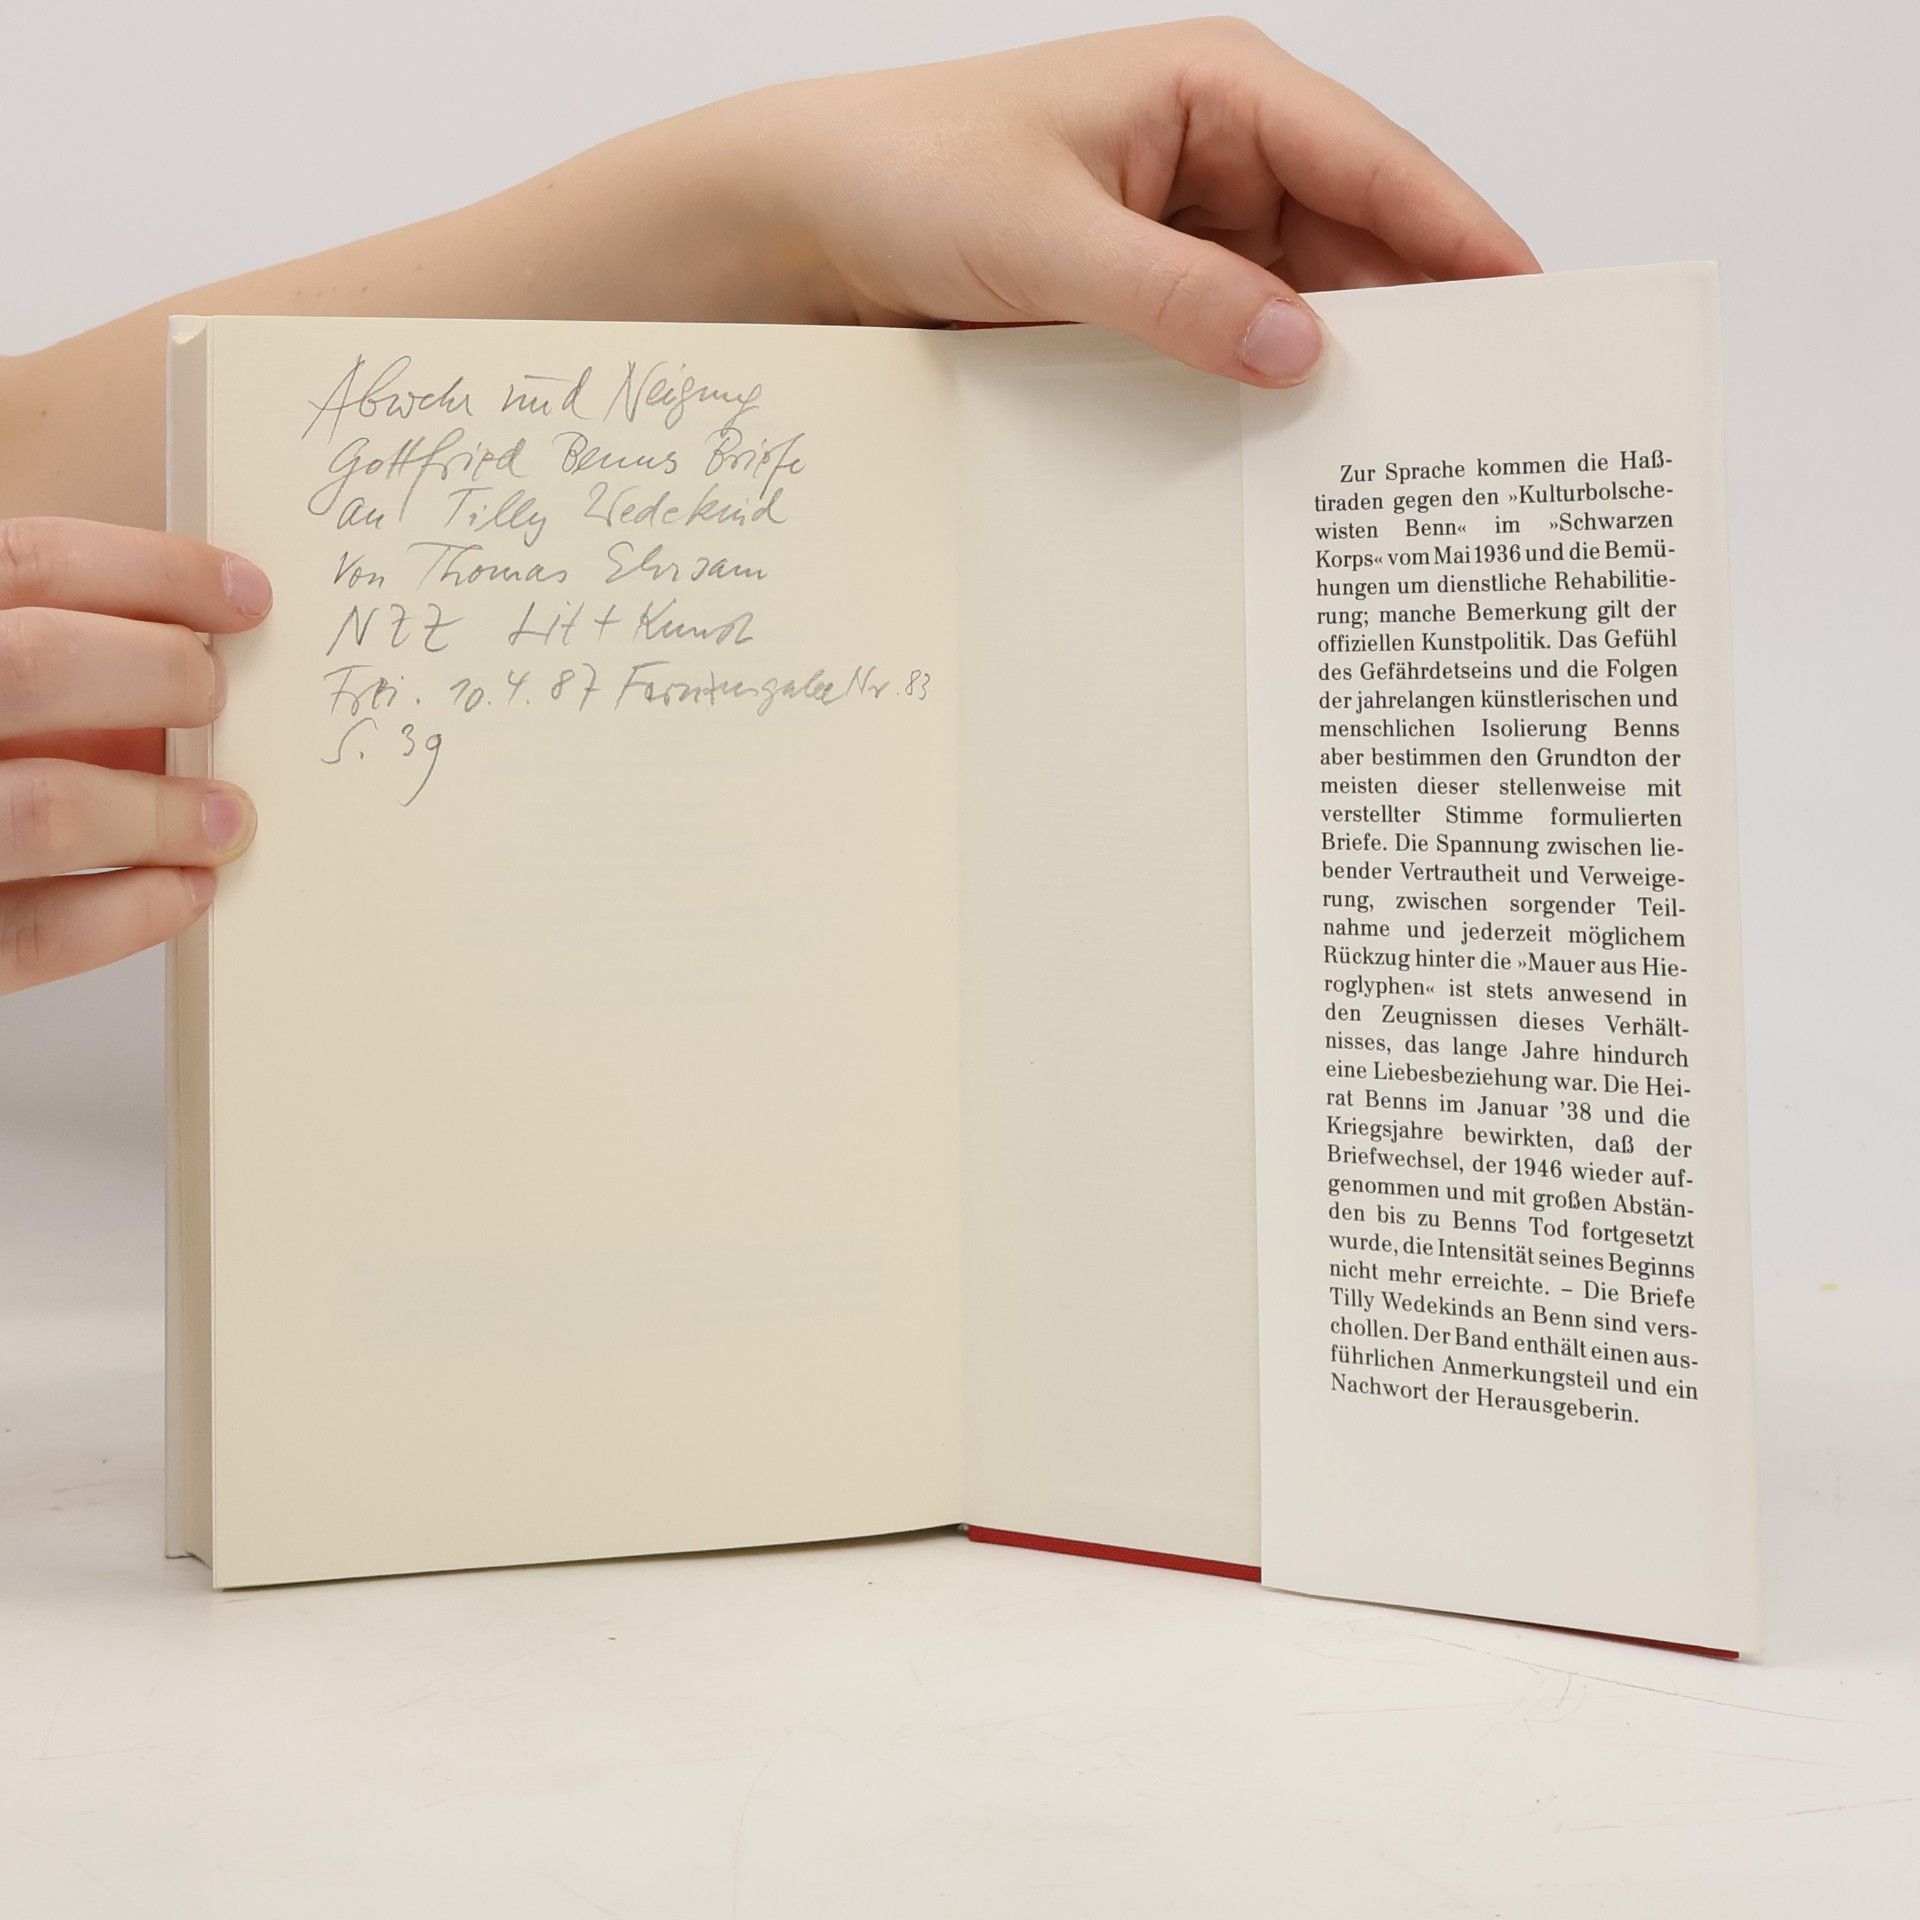 Abwehr und Neigung
Gottfried Benns Briefe
an Tilly Wedekind
Von Thomas Ehrsam
NZZ Lit + Kunst
Frei. 10.4.87 Fernausgabe Nr. 83
S. 39
Zur Sprache kommen die Haß-
tiraden gegen den »Kulturbolsche-
wisten Benn« im »Schwarzen
Korps« vom Mai 1936 und die Bemü-
hungen um dienstliche Rehabilitie-
rung; manche Bemerkung gilt der
offiziellen Kunstpolitik. Das Gefühl
des Gefährdetseins und die Folgen
der jahrelangen künstlerischen und
menschlichen Isolierung Benns
aber bestimmen den Grundton der
meisten dieser stellenweise mit
verstellter Stimme formulierten
Briefe. Die Spannung zwischen lie-
bender Vertrautheit und Verweige-
rung, zwischen sorgender Teil-
nahme und jederzeit möglichem
Rückzug hinter die »Mauer aus Hie-
roglyphen« ist stets anwesend in
den Zeugnissen dieses Verhält-
nisses, das lange Jahre hindurch
eine Liebesbeziehung war. Die Hei-
rat Benns im Januar ’38 und die
Kriegsjahre bewirkten, daß der
Briefwechsel, der 1946 wieder auf-
genommen und mit großen Abstän-
den bis zu Benns Tod fortgesetzt
wurde, die Intensität seines Beginns
nicht mehr erreichte. – Die Briefe
Tilly Wedekinds an Benn sind vers-
chollen. Der Band enthält einen aus-
führlichen Anmerkungsteil und ein
Nachwort der Herausgeberin.